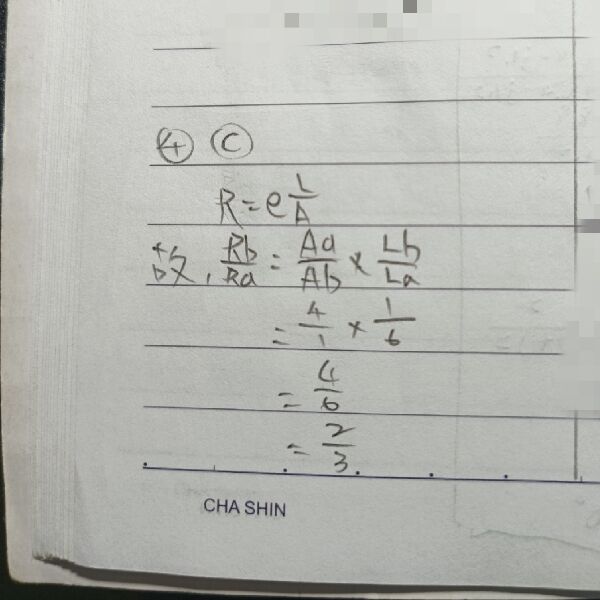 ④ Ⓒ
R = ρ L/A
故, Rb/Ra = Aa/Ab × Lb/La
= 4/1 × 1/6
= 4/6
= 2/3
CHA SHIN